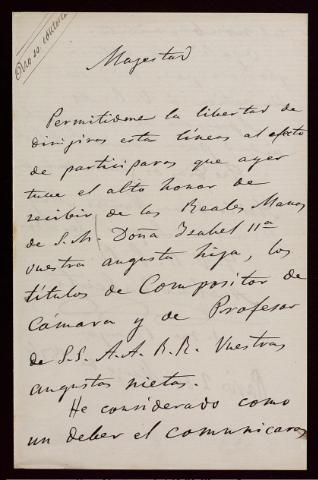 Magestad
Permitidme la libertad de
dirijiros esta lineas al efecto
de participaros que ayer
tuve el alto honor de
recibir, de las Reales Manos
de S.M. Doña Isabel IIª
vuestra augusta hija, los
títulos de Compositor de
Cámara y de Profesor
de S.S. A.A. R.R. Vuestras
augustas nietas.
He considerado como
un deber el comunicaros